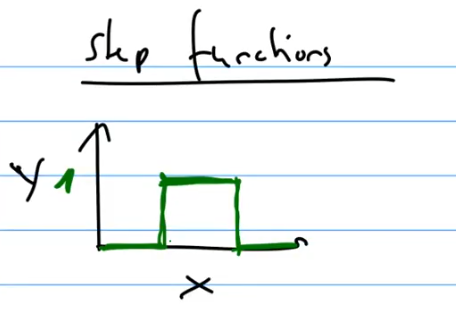 step functions
Y 1
X